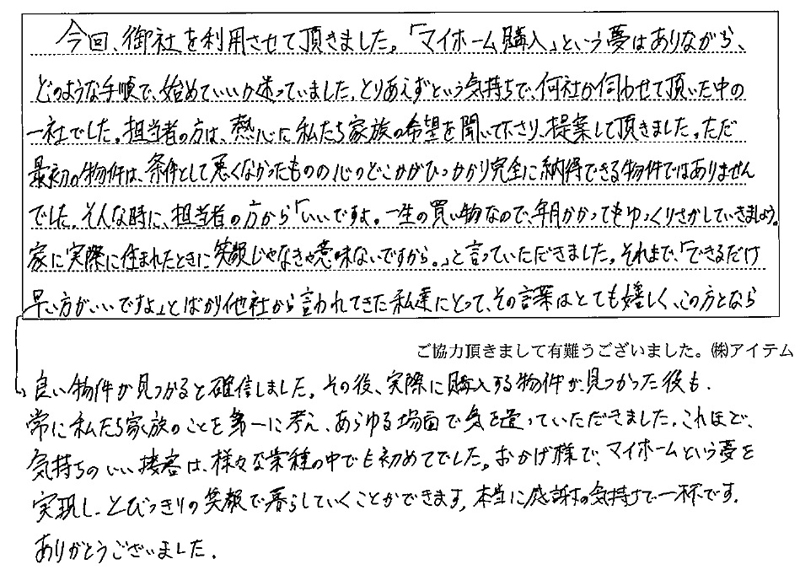 今回、御社を利用させて頂きました。「マイホーム購入」という夢はありながら、
どのような手順で、始めていいか迷っていました。とりあえずという気持ちで、何社か伺わせて頂いた中の
一社でした。担当者の方は、熱心に私たち家族の希望を聞いて下さり、提案して頂きました。ただ
最初の物件は、条件として悪くなかったものの、心のどこかがひっかかり完全に納得できる物件ではありません
でした。そんな時に、担当者の方から「いいですよ。一生の買い物なので、年月かかってもゆっくりさがしていきましょう。
家に実際に住まれたときに笑顔じゃなきゃ意味ないですから。」と言っていただきました。それまで、「できるだけ
早い方がいいですよ」とばかり他社から言われてきた私達にとって、その言葉はとても嬉しく、この方となら
ご協力頂きまして有難うございました。㈱アイテム
良い物件が見つかると確信しました。その後、実際に購入する物件が、見つかった後も、
常に私たち家族のことを第一に考え、あらゆる場面で気を遣っていただきました。これほど、
気持ちのいい接客は、様々な業種の中でも初めてでした。おかげ様で、マイホームという夢を
実現し、とびっきりの笑顔で暮らしていくことができます。本当に感謝の気持ちで一杯です。
ありがとうございました。